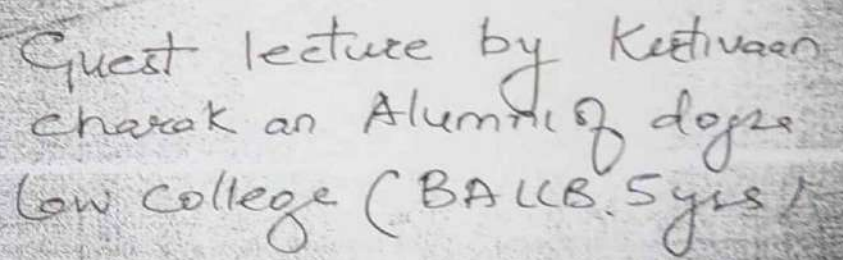 Guest lecture by Kirtivaan
charak an Alumni of dogra
Law College (BALLB. 5 yrs)